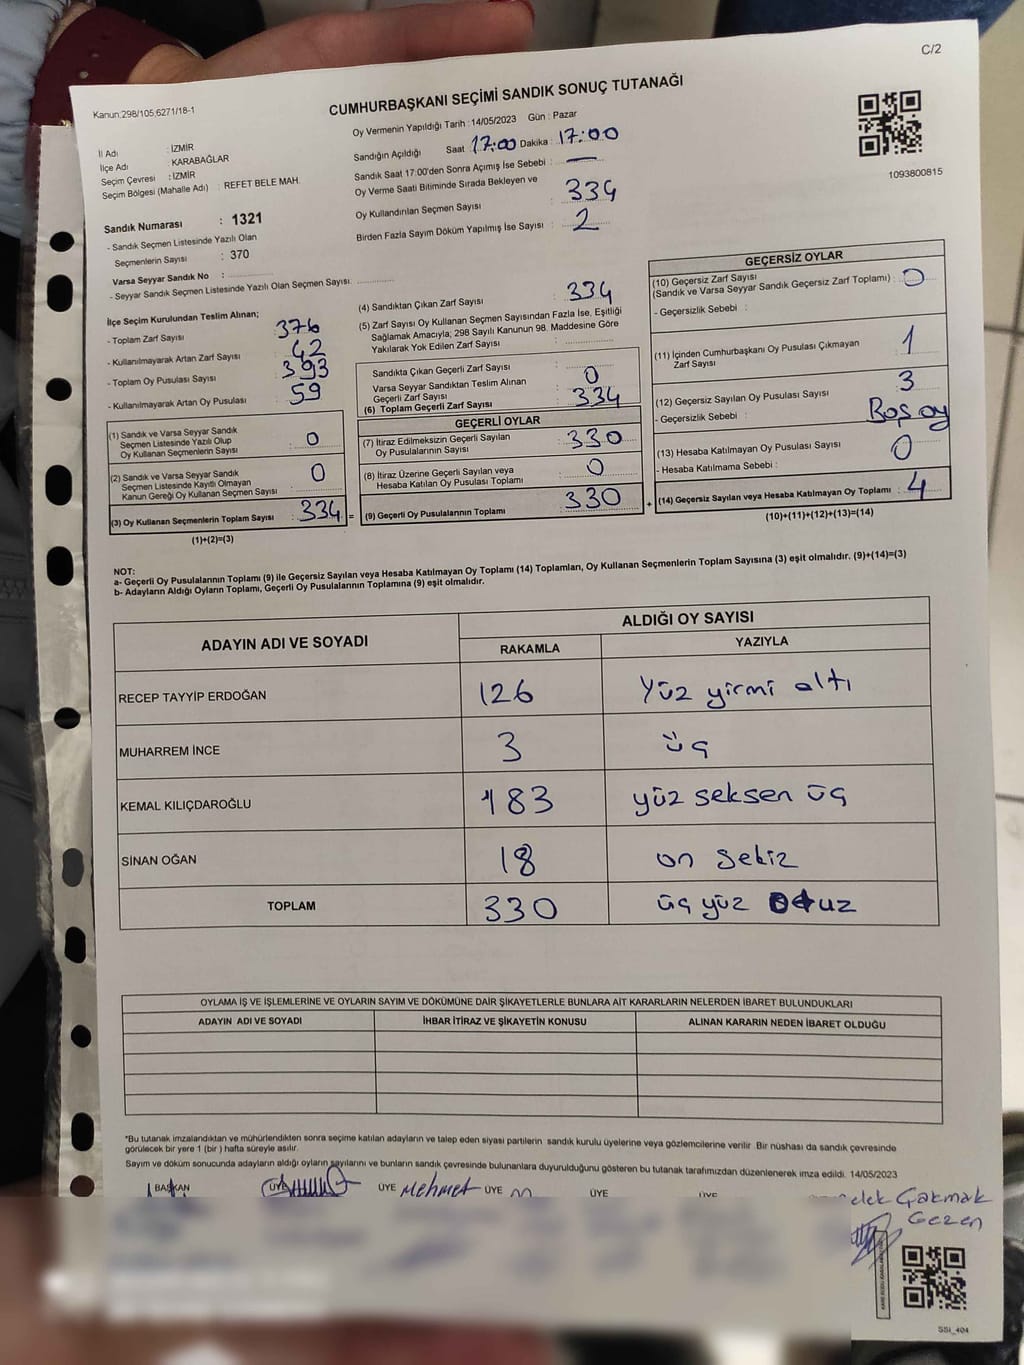 C/2
Kanun:298/105,6271/18-1
CUMHURBAŞKANI SEÇİMİ SANDIK SONUÇ TUTANAĞI
İl Adı : İZMİR
İlçe Adı : KARABAĞLAR
Seçim Çevresi : İZMİR
Seçim Bölgesi (Mahalle Adı) : REFET BELE MAH.
Sandık Numarası : 1321
- Sandık Seçmen Listesinde Yazılı Olan
Seçmenlerin Sayısı : 370
Varsa Seyyar Sandık No :
- Seyyar Sandık Seçmen Listesinde Yazılı Olan Seçmen Sayısı:
Oy Vermenin Yapıldığı Tarih : 14/05/2023 Gün : Pazar
Sandığın Açıldığı Saat 17:00 Dakika : 17:00
Sandık Saat 17:00'den Sonra Açımış İse Sebebi : —
Oy Verme Saati Bitiminde Sırada Bekleyen ve
Oy Kullandırılan Seçmen Sayısı : 334
Birden Fazla Sayım Döküm Yapılmış İse Sayısı : 2
1093800815
İlçe Seçim Kurulundan Teslim Alınan;
- Toplam Zarf Sayısı : 376
- Kullanılmayarak Artan Zarf Sayısı : 42
- Toplam Oy Pusulası Sayısı : 393
- Kullanılmayarak Artan Oy Pusulası : 59
(1) Sandık ve Varsa Seyyar Sandık
Seçmen Listesinde Yazılı Olup
Oy Kullanan Seçmenlerin Sayısı : 0
(2) Sandık ve Varsa Seyyar Sandık
Seçmen Listesinde Kayıtlı Olmayan
Kanun Gereği Oy Kullanan Seçmen Sayısı : 0
(3) Oy Kullanan Seçmenlerin Toplam Sayısı : 334 =
(1)+(2)=(3)
(4) Sandıktan Çıkan Zarf Sayısı : 334
(5) Zarf Sayısı Oy Kullanan Seçmen Sayısından Fazla İse, Eşitliği
Sağlamak Amacıyla; 298 Sayılı Kanunun 98. Maddesine Göre
Yakılarak Yok Edilen Zarf Sayısı :
Sandıkta Çıkan Geçerli Zarf Sayısı :
Varsa Seyyar Sandıktan Teslim Alınan
Geçerli Zarf Sayısı : 0
(6) Toplam Geçerli Zarf Sayısı : 334
GEÇERLİ OYLAR
(7) İtiraz Edilmeksizin Geçerli Sayılan
Oy Pusulalarının Sayısı : 330
(8) İtiraz Üzerine Geçerli Sayılan veya
Hesaba Katılan Oy Pusulası Toplamı : 0
(9) Geçerli Oy Pusulalarının Toplamı : 330 +
GEÇERSİZ OYLAR
(10) Geçersiz Zarf Sayısı
(Sandık ve Varsa Seyyar Sandık Geçersiz Zarf Toplamı) : 0
- Geçersizlik Sebebi :
(11) İçinden Cumhurbaşkanı Oy Pusulası Çıkmayan
Zarf Sayısı : 1
(12) Geçersiz Sayılan Oy Pusulası Sayısı : 3
- Geçersizlik Sebebi : Boş oy
(13) Hesaba Katılmayan Oy Pusulası Sayısı : 0
- Hesaba Katılmama Sebebi :
(14) Geçersiz Sayılan veya Hesaba Katılmayan Oy Toplamı : 4
(10)+(11)+(12)+(13)=(14)
NOT:
a- Geçerli Oy Pusulalarının Toplamı (9) ile Geçersiz Sayılan veya Hesaba Katılmayan Oy Toplamı (14) Toplamları, Oy Kullanan Seçmenlerin Toplam Sayısına (3) eşit olmalıdır. (9)+(14)=(3)
b- Adayların Aldığı Oyların Toplamı, Geçerli Oy Pusulalarının Toplamına (9) eşit olmalıdır.
ADAYIN ADI VE SOYADI ALDIĞI OY SAYISI
RAKAMLA YAZIYLA
RECEP TAYYİP ERDOĞAN 126 Yüz yirmi altı
MUHARREM İNCE 3 üç
KEMAL KILIÇDAROĞLU 183 yüz seksen üç
SİNAN OĞAN 18 on sekiz
TOPLAM 330 üç yüz otuz
OYLAMA İŞ VE İŞLEMLERİNE VE OYLARIN SAYIM VE DÖKÜMÜNE DAİR ŞİKAYETLERLE BUNLARA AİT KARARLARIN NELERDEN İBARET BULUNDUKLARI
ADAYIN ADI VE SOYADI İHBAR İTİRAZ VE ŞİKAYETİN KONUSU ALINAN KARARIN NEDEN İBARET OLDUĞU
*Bu tutanak imzalandıktan ve mühürlendikten sonra seçime katılan adayların ve talep eden siyasi partilerin sandık kurulu üyelerine veya gözlemcilerine verilir. Bir nüshası da sandık çevresinde
görülecek bir yere 1 (bir) hafta süreyle asılır.
Sayım ve döküm sonucunda adayların aldığı oyların sayılarını ve bunların sandık çevresinde bulunanlara duyurulduğunu gösteren bu tutanak tarafımızdan düzenlenerek imza edildi. 14/05/2023
BAŞKAN ÜYE ÜYE Mehmet ÜYE ÜYE ÜYE
Çakmak
Gezen
SSI_404